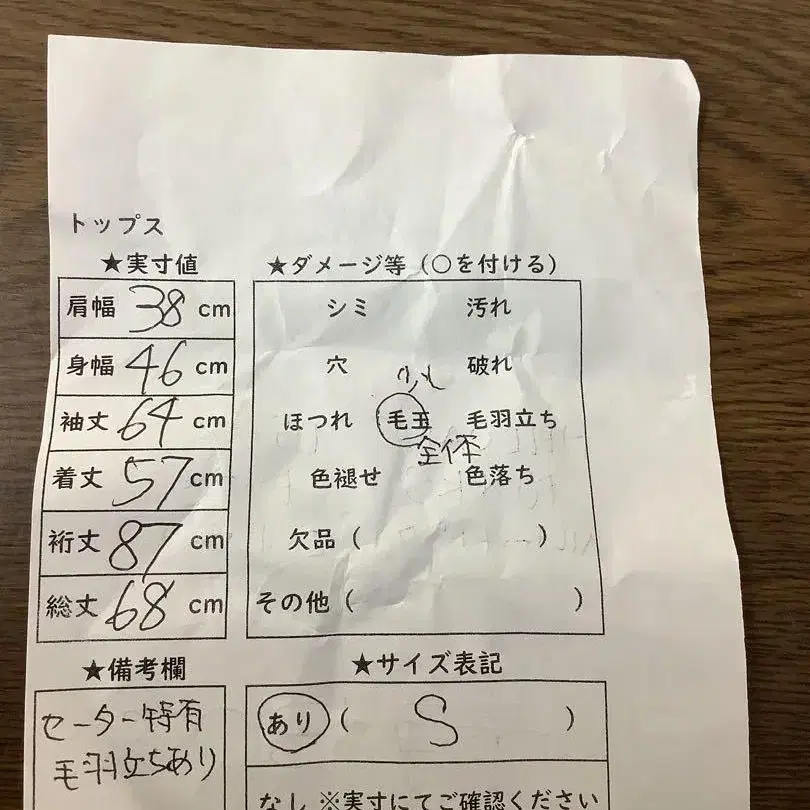 トップス
★実寸値
肩幅 38 cm
身幅 46 cm
袖丈 64 cm
着丈 57 cm
裄丈 87 cm
総丈 68 cm
★ダメージ等（〇を付ける）
シミ 汚れ
穴 破れ
少し
ほつれ 毛玉 毛羽立ち
全体
色褪せ 色落ち
欠品（ ）
その他（ ）
★備考欄
セーター特有
毛羽立ちあり
★サイズ表記
あり（ S ）
なし ※実寸にてご確認ください